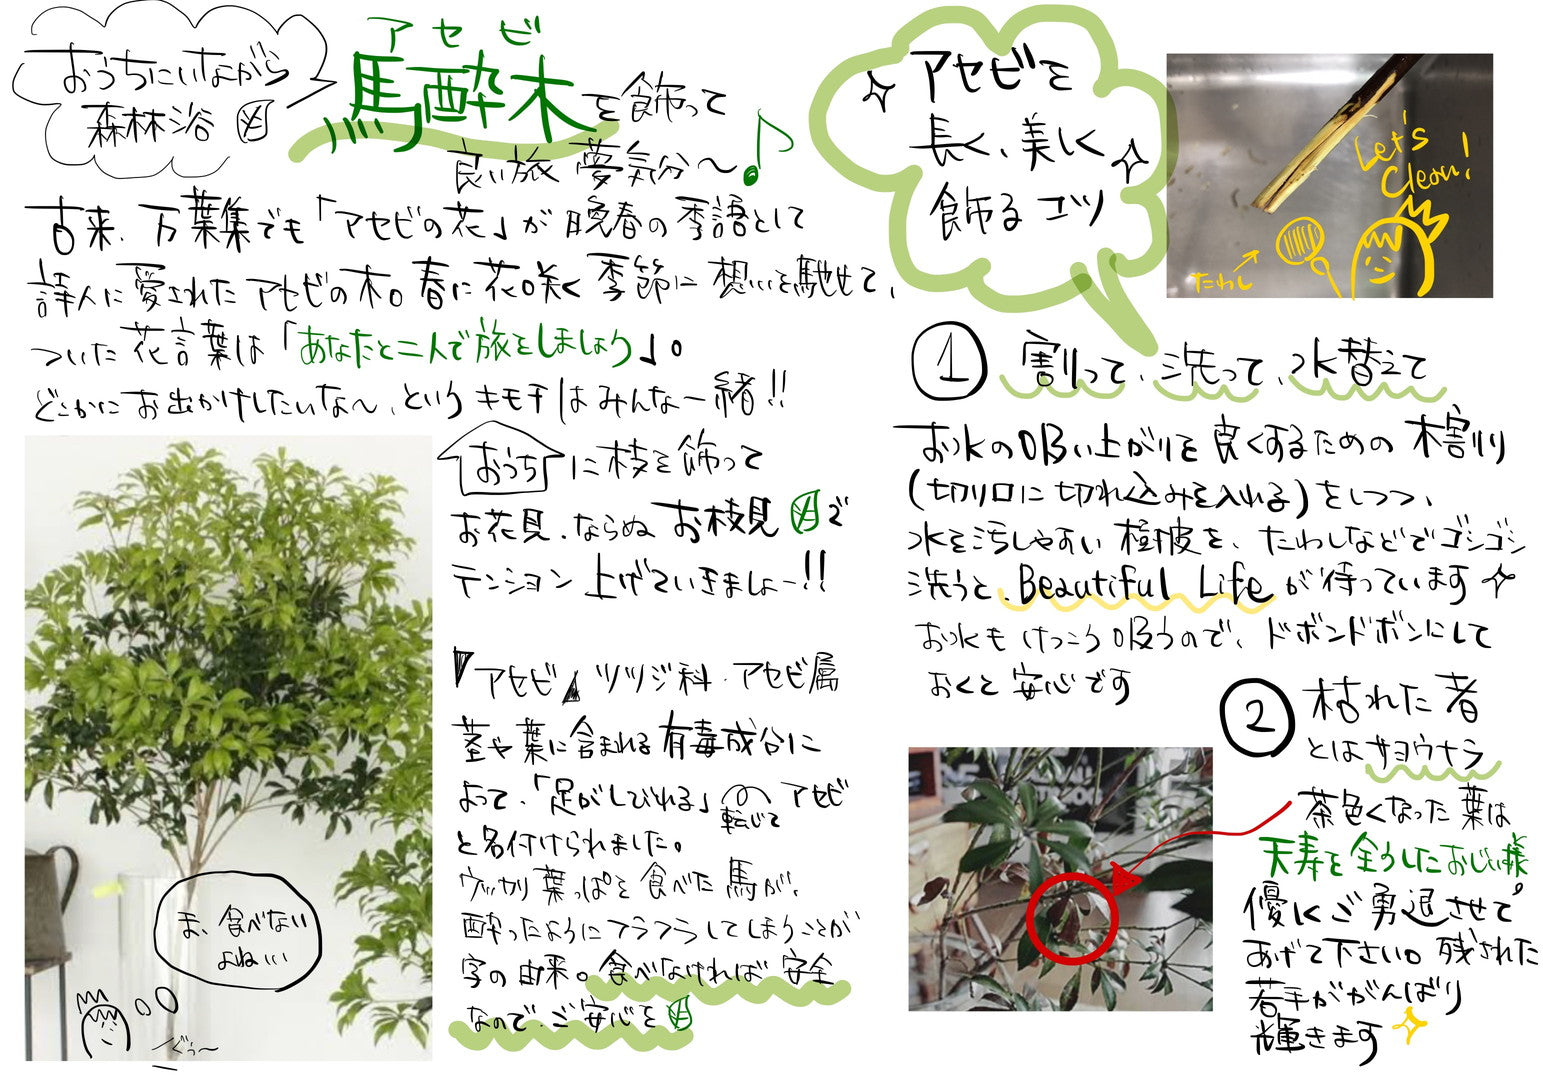 おうちにいながら
森林浴
アセビ
馬酔木を飾って
良い旅 夢気分〜♪
古来、万葉集でも「アセビの花」が晩春の季語として
詩人に愛されたアセビの木。春に花咲く季節に想いを馳せて、
ついた花言葉は「あなたと二人で旅をしましょう」。
どこかにお出かけしたいな〜、というキモチはみんな一緒!!
おうちに枝を飾って
お花見、ならぬお枝見で
テンション上げていきましょー!!
『アセビ』ツツジ科・アセビ属
茎や葉に含まれる有毒成分に
よって、「足がしびれる」転じてアセビ
と名付けられました。
ウッカリ葉っぱを食べた馬が、
酔ったようにフラフラしてしまうことが
字の由来。食べなければ安全
なので、ご安心を
ま、食べない
よね…
ぐぅ〜
アセビを
長く、美しく
飾るコツ
Let's
Clean!
たわし
① 割って、洗って、水替えて
お水の吸い上がりを良くするための木割り
(切り口に切れ込みを入れる)をしつつ、
水を汚しやすい樹皮を、たわしなどでゴシゴシ
洗うと、Beautiful Lifeが待っています
お水もけっこう吸うので、ドボンドボンにして
おくと安心です
② 枯れた者
とはサヨウナラ
茶色くなった葉は
天寿を全うしたおじい様。
優しくご勇退させて
あげて下さい。残された
若手ががんばり
輝きます